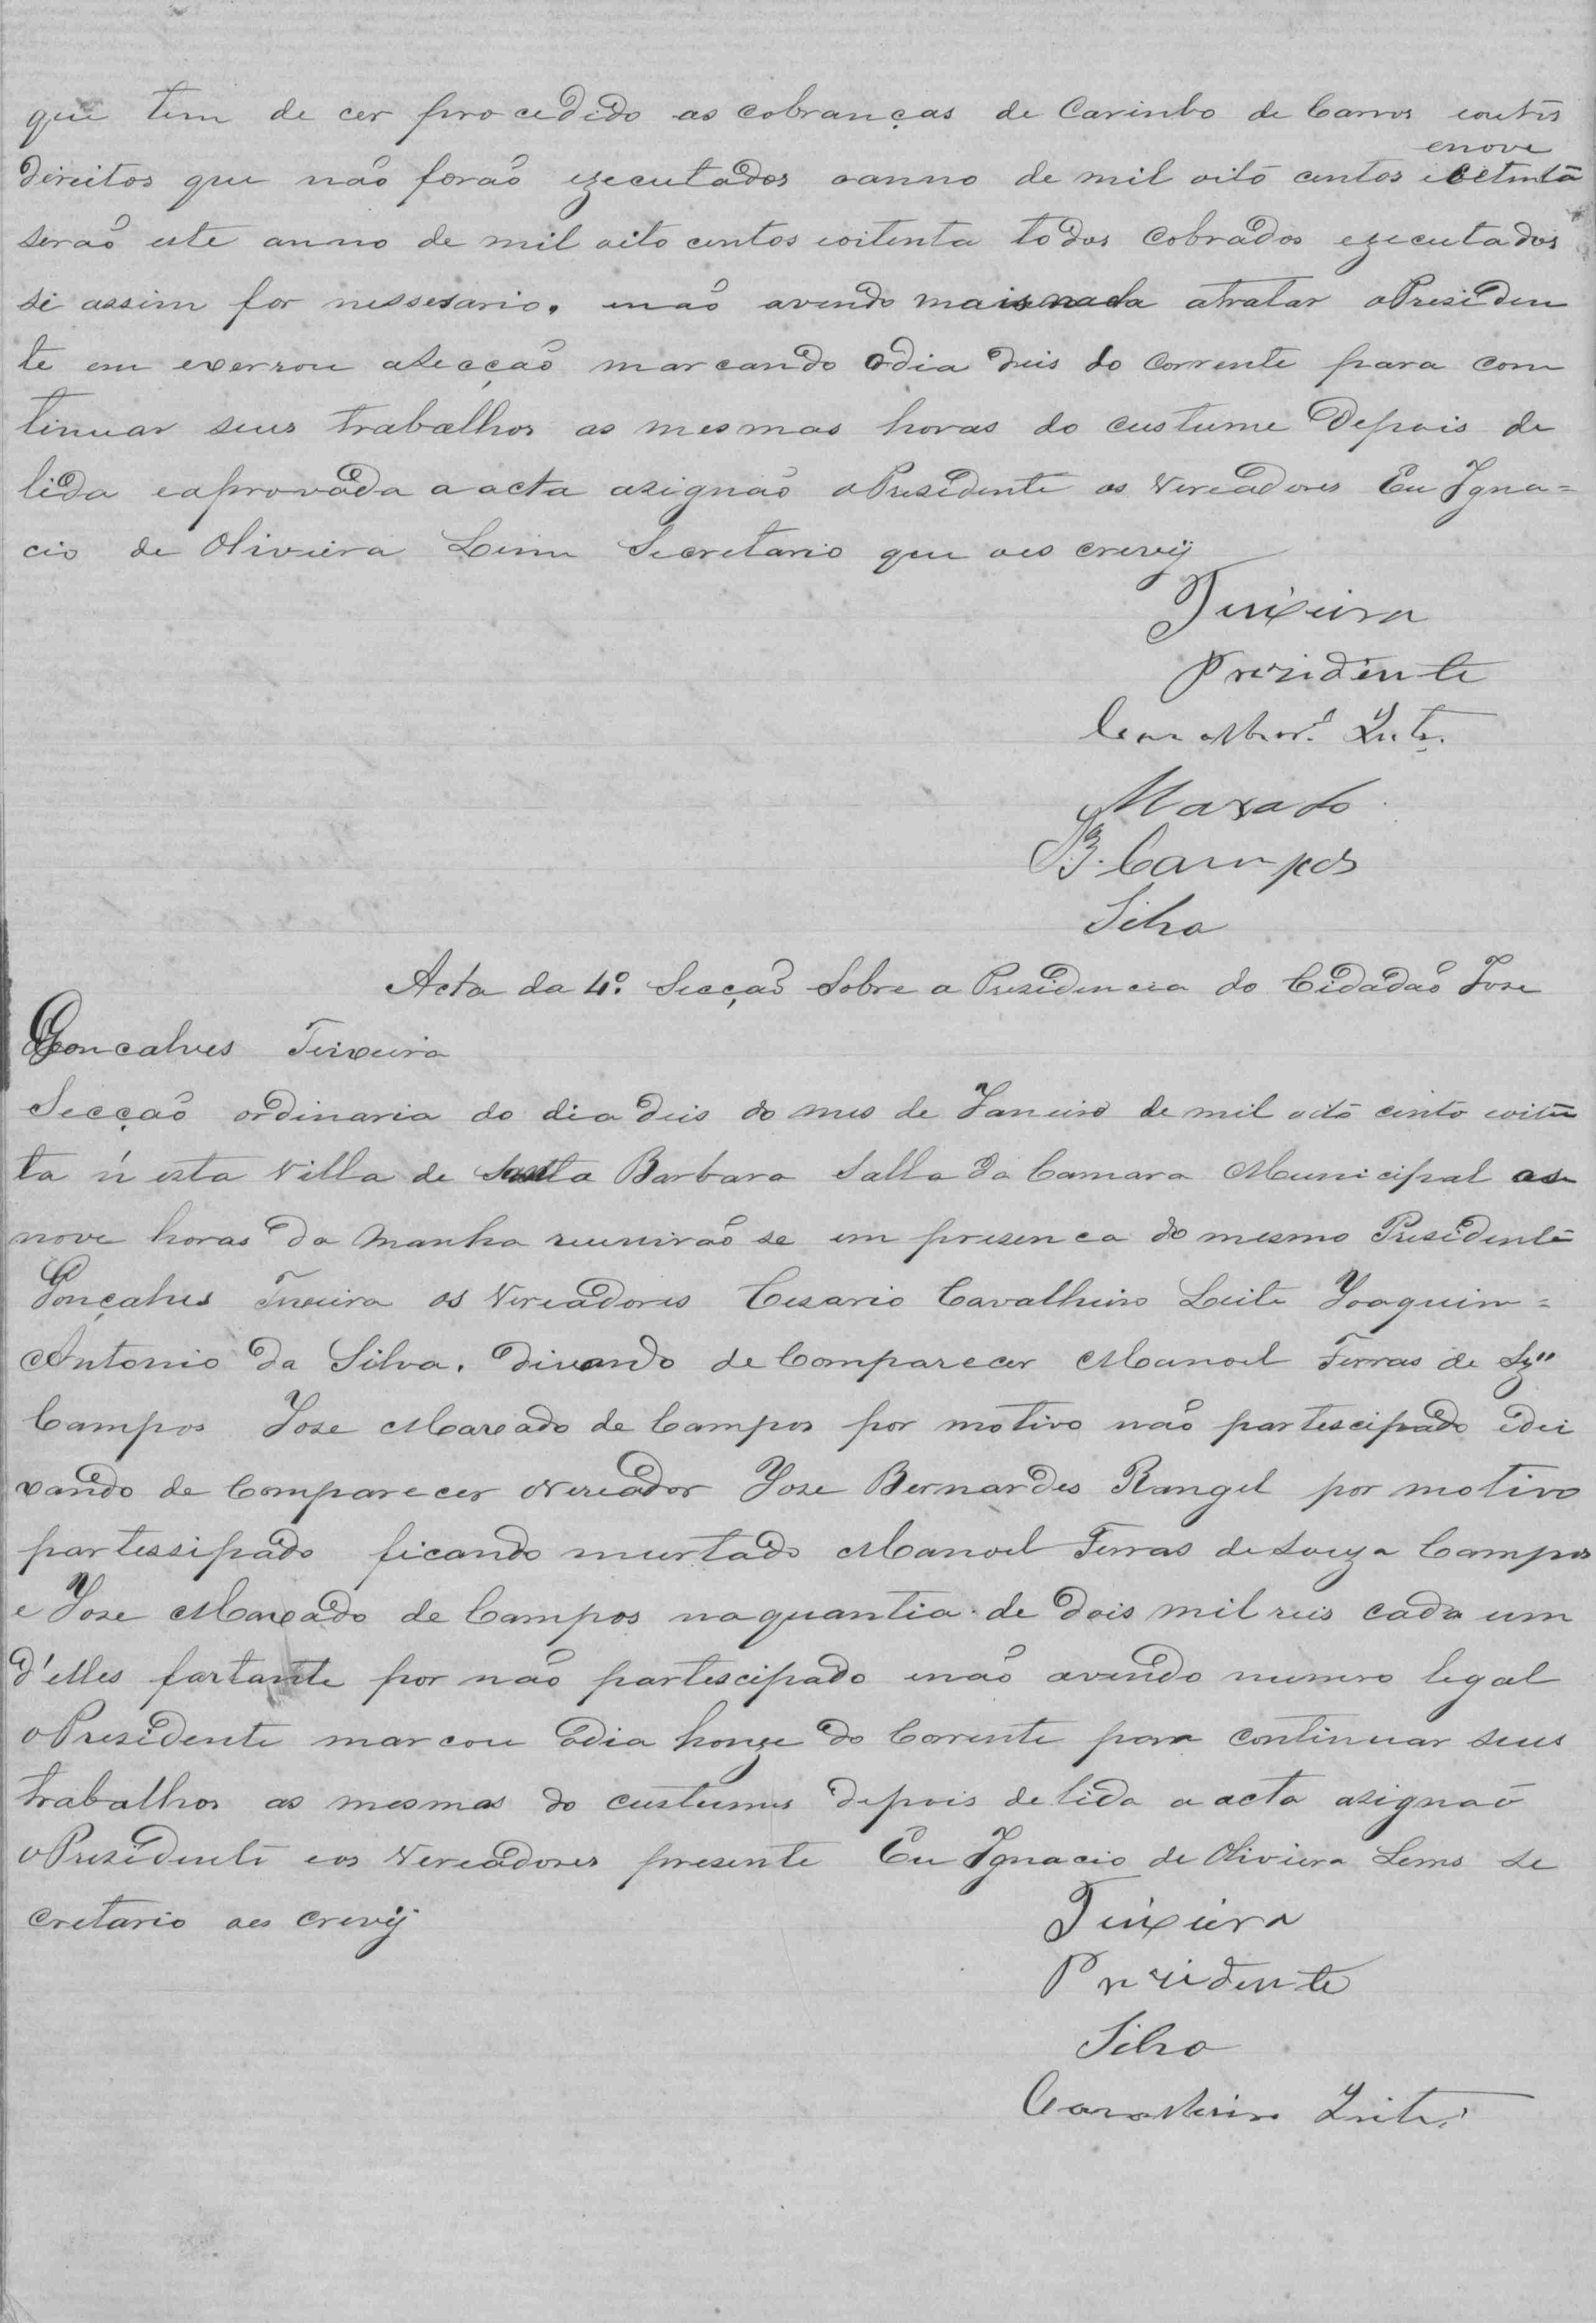 que tem de cer procedido as cobranças de Carinbo de Carros eoutrs
enove
direitos que não forão ezecutados oanno de mil oito centos esetenta
serão este anno de mil oito centos eoitenta todos Cobrados ezecutados
si assim for nessesario. enão avendo mais nada atratar oPresiden
te em exerrou asecção marcando odia deis do Corrente para com
tinuar seus trabalhos as mesmas horas do custume Depois de
lida eaprovada a acta asignão oPresidente os Vereadores Eu Igna=
cio de Oliveira Leme Secretario que oes crevij
Teixeira
Prezidente
Leite
Maxado
B. Campos
Silva
Acta da 4ª. Secção Sobre a Presidencia do Cidadão Jose
Goncalves Teixeira
Secção ordinaria do dia deis do mes de Janeiro de mil oito cento eoiten
ta n'esta Villa de Santa Barbara Salla da Camara Municipal as
nove horas da manha reunirão se em presenca do mesmo Presidente
Gonçalves Teixeira os Vereadores Cesario Cavalheiro Leite Joaquim=
Antonio da Silva. Dixando de Comparecer Manoel Ferras de Sz"
Campos Jose Maxado de Campos por motivo não partescipado edei
xando de Comparecer oVereador Jose Bernardes Rangel por motivo
partessipado ficando murtado Manoel Ferras de Souza Campos
e Jose Maxado de Campos naquantia de dois mil reis cada um
d'elles fartante por não partescipado enão avendo numero legal
oPresidente marcou odia honze do Corrente para continuar seus
trabalhos as mesmas do custumes depois de lida a acta asignão
oPresidente eos Vereadores presente Eu Ignacio de Oliviera Lems se
cretario oes crevij
Teixeira
Prezidente
Silva
Cavalheiro Leite